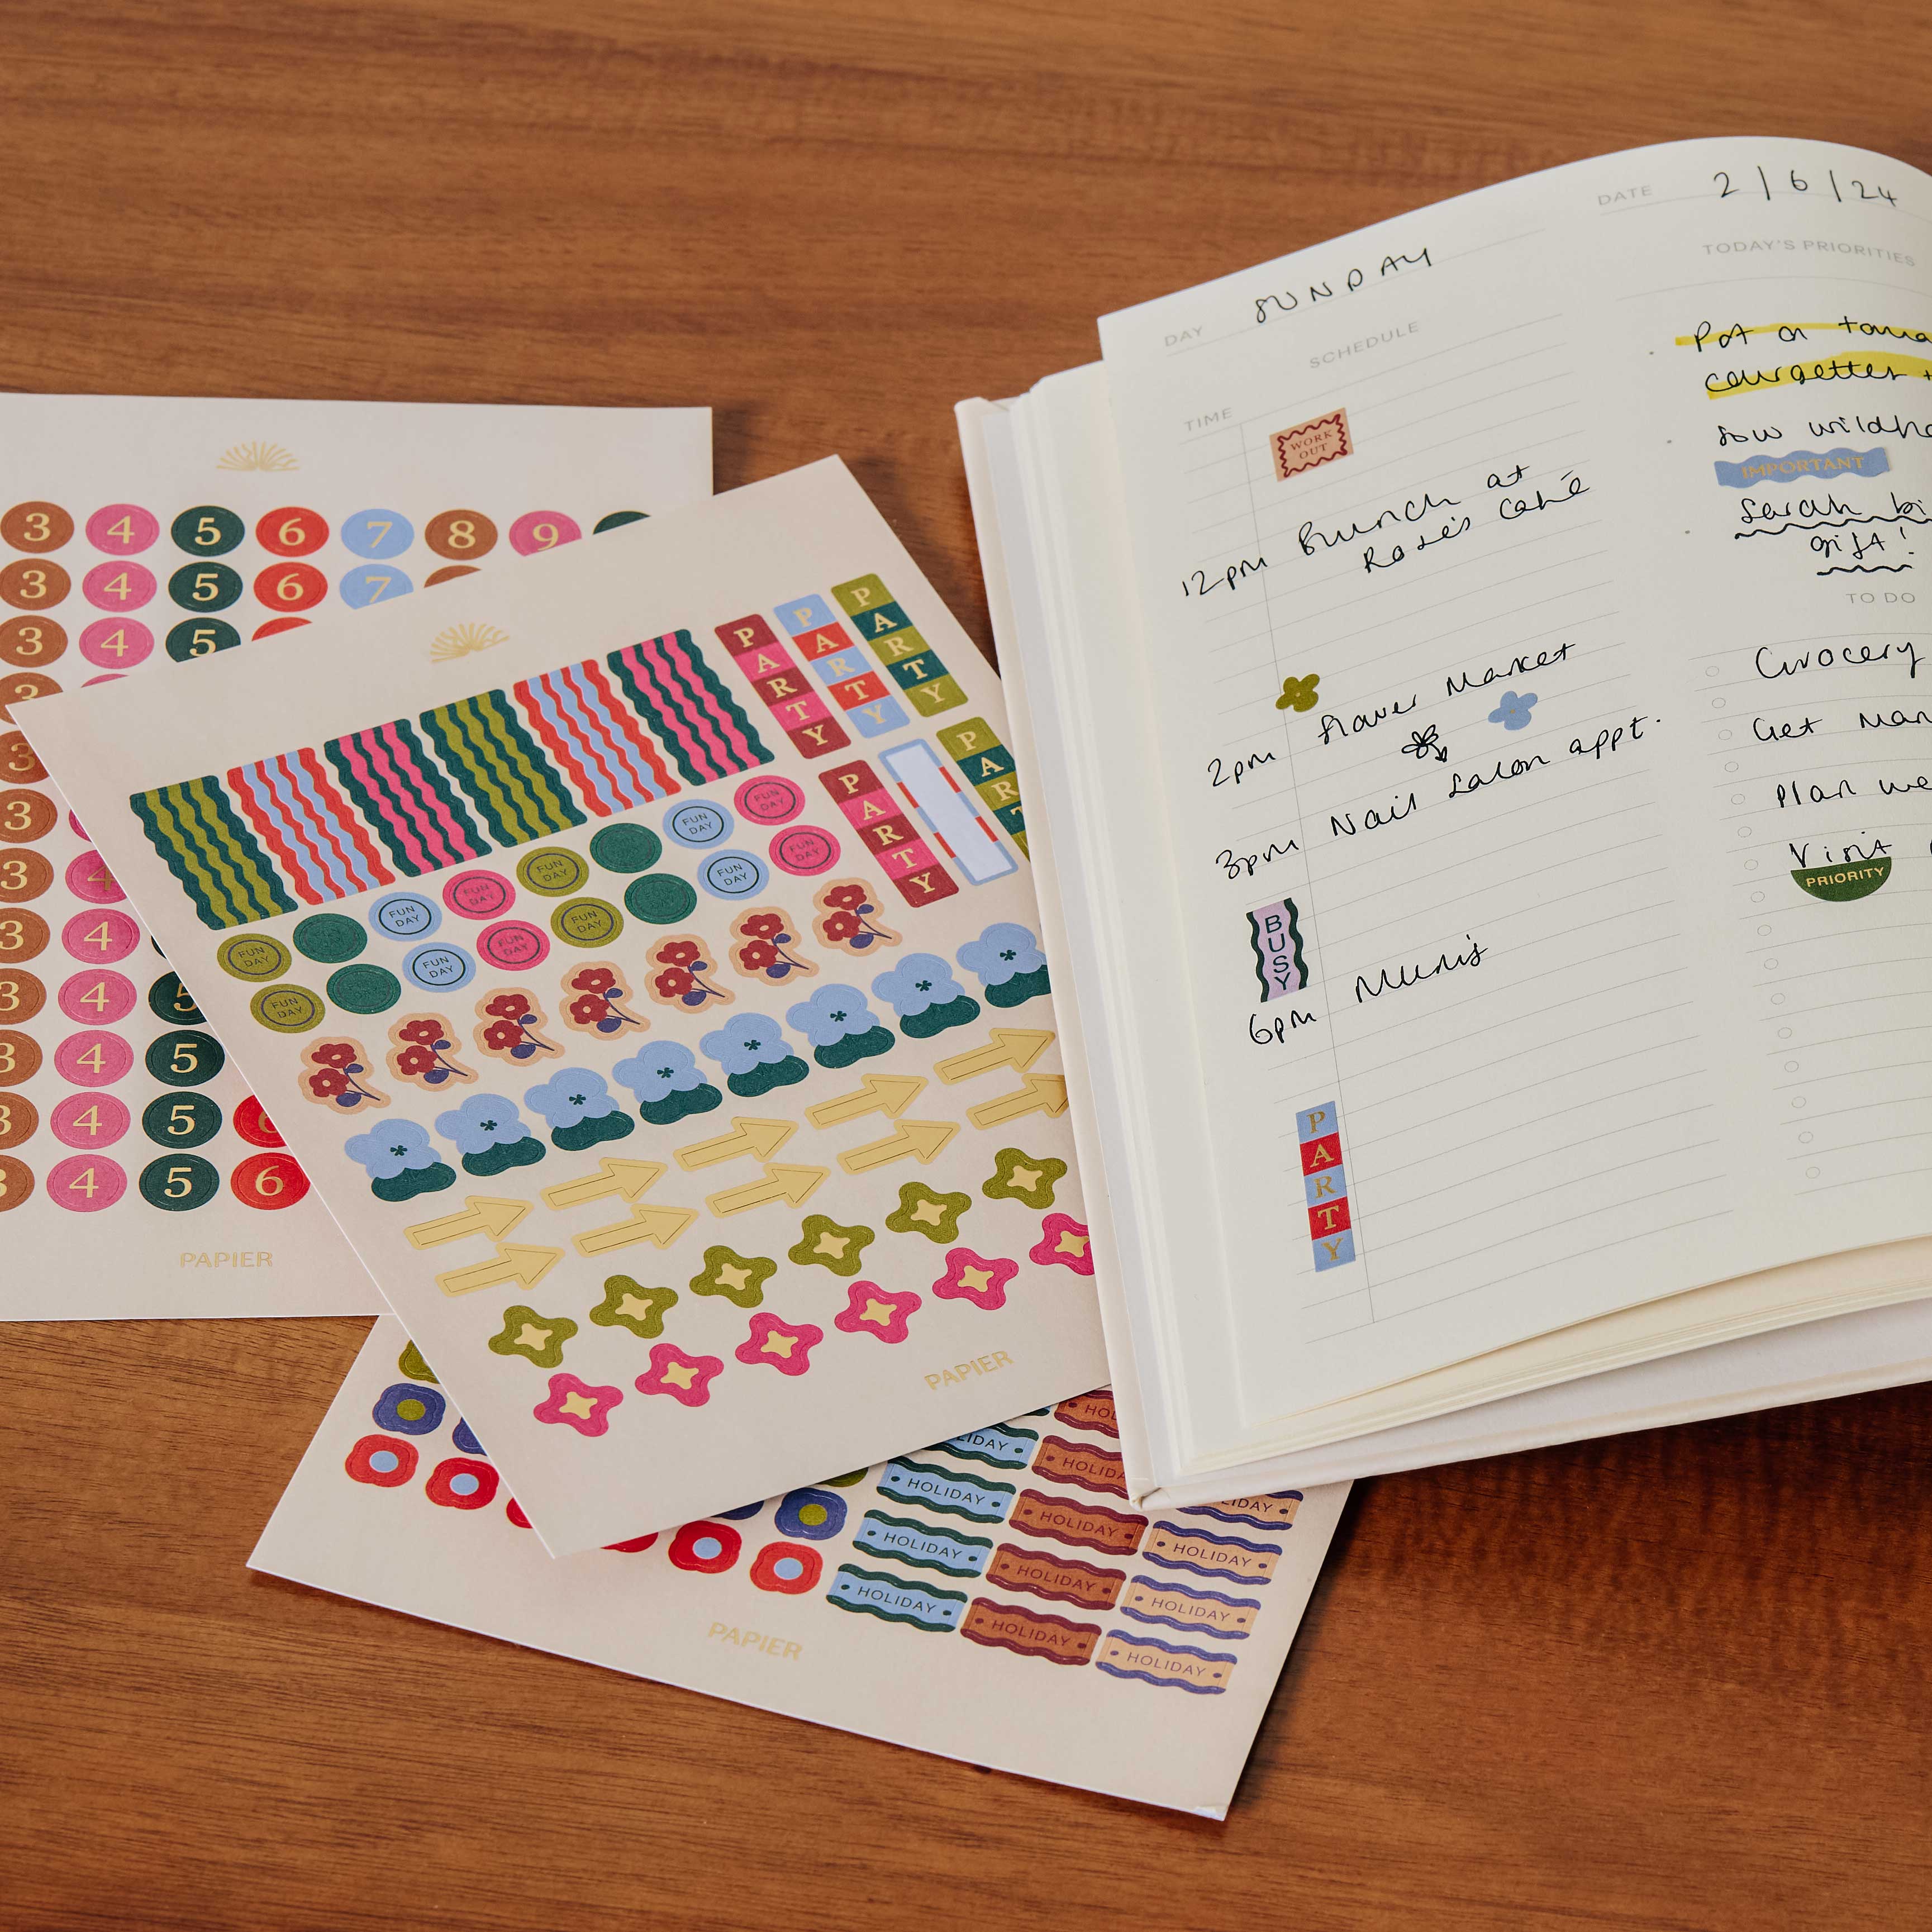 DATE 2/6/24
DAY SUNDAY
SCHEDULE
TIME
WORK
OUT
12pm Brunch at
Rose's Café
2pm Flower Market
3pm Nail Salon appt.
BUSY
6pm Mum's
PARTY
TODAY'S PRIORITIES
Pot on
courgettes +
Sow
IMPORTANT
Sarah
gift!
TO DO
Grocery
Get
Plan
Visit
PRIORITY
3 4 5 6 7 8 9
3 4 5 6 7
3 4 5
3
3
3
3 4
3 4
3 4 5
3 4 5
3 4 5 6
3 4 5 6
PAPIER
PARTY PARTY PARTY
PARTY PART
FUN DAY FUN DAY FUN DAY FUN DAY FUN DAY
FUN DAY FUN DAY FUN DAY FUN DAY FUN DAY
PAPIER
HOLIDAY HOLIDAY
HOLIDAY HOLIDAY HOLIDAY
HOLIDAY HOLIDAY HOLIDAY
HOLIDAY HOLIDAY HOLIDAY
PAPIER